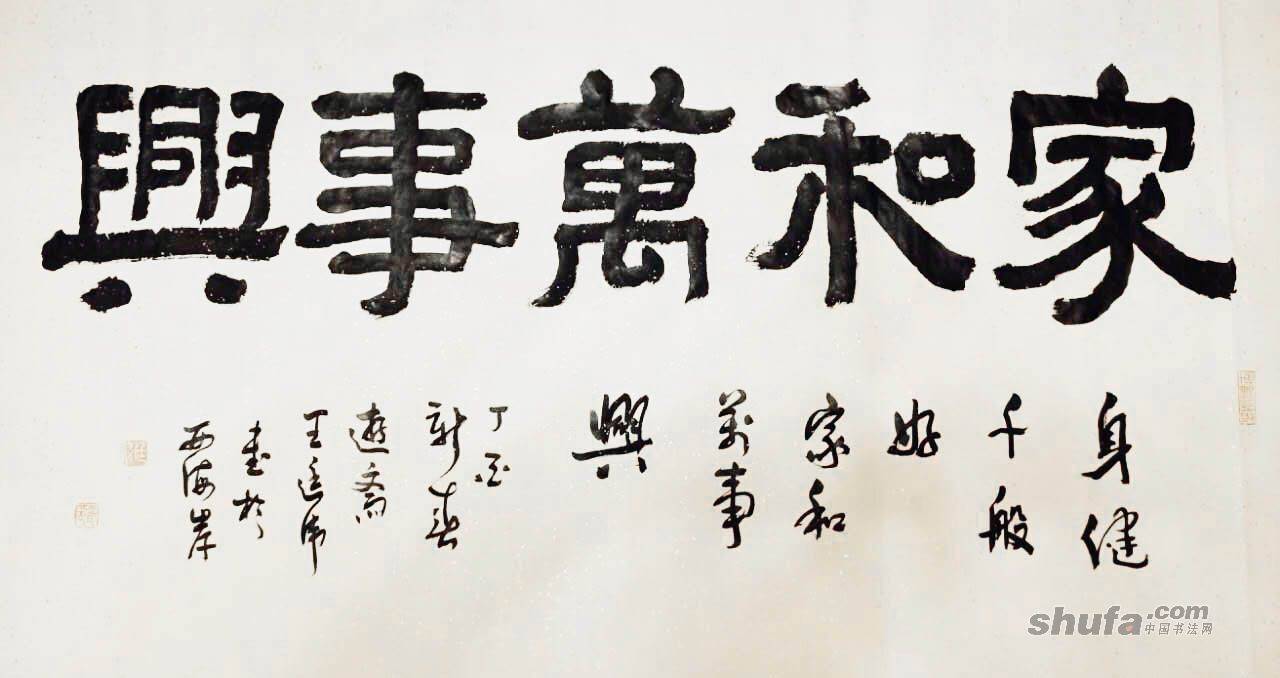 家和萬事興
身健
千般
好
家和
萬事
興
丁酉
新春
斎
王
書於
西海岸
shufa.com
中国书法网